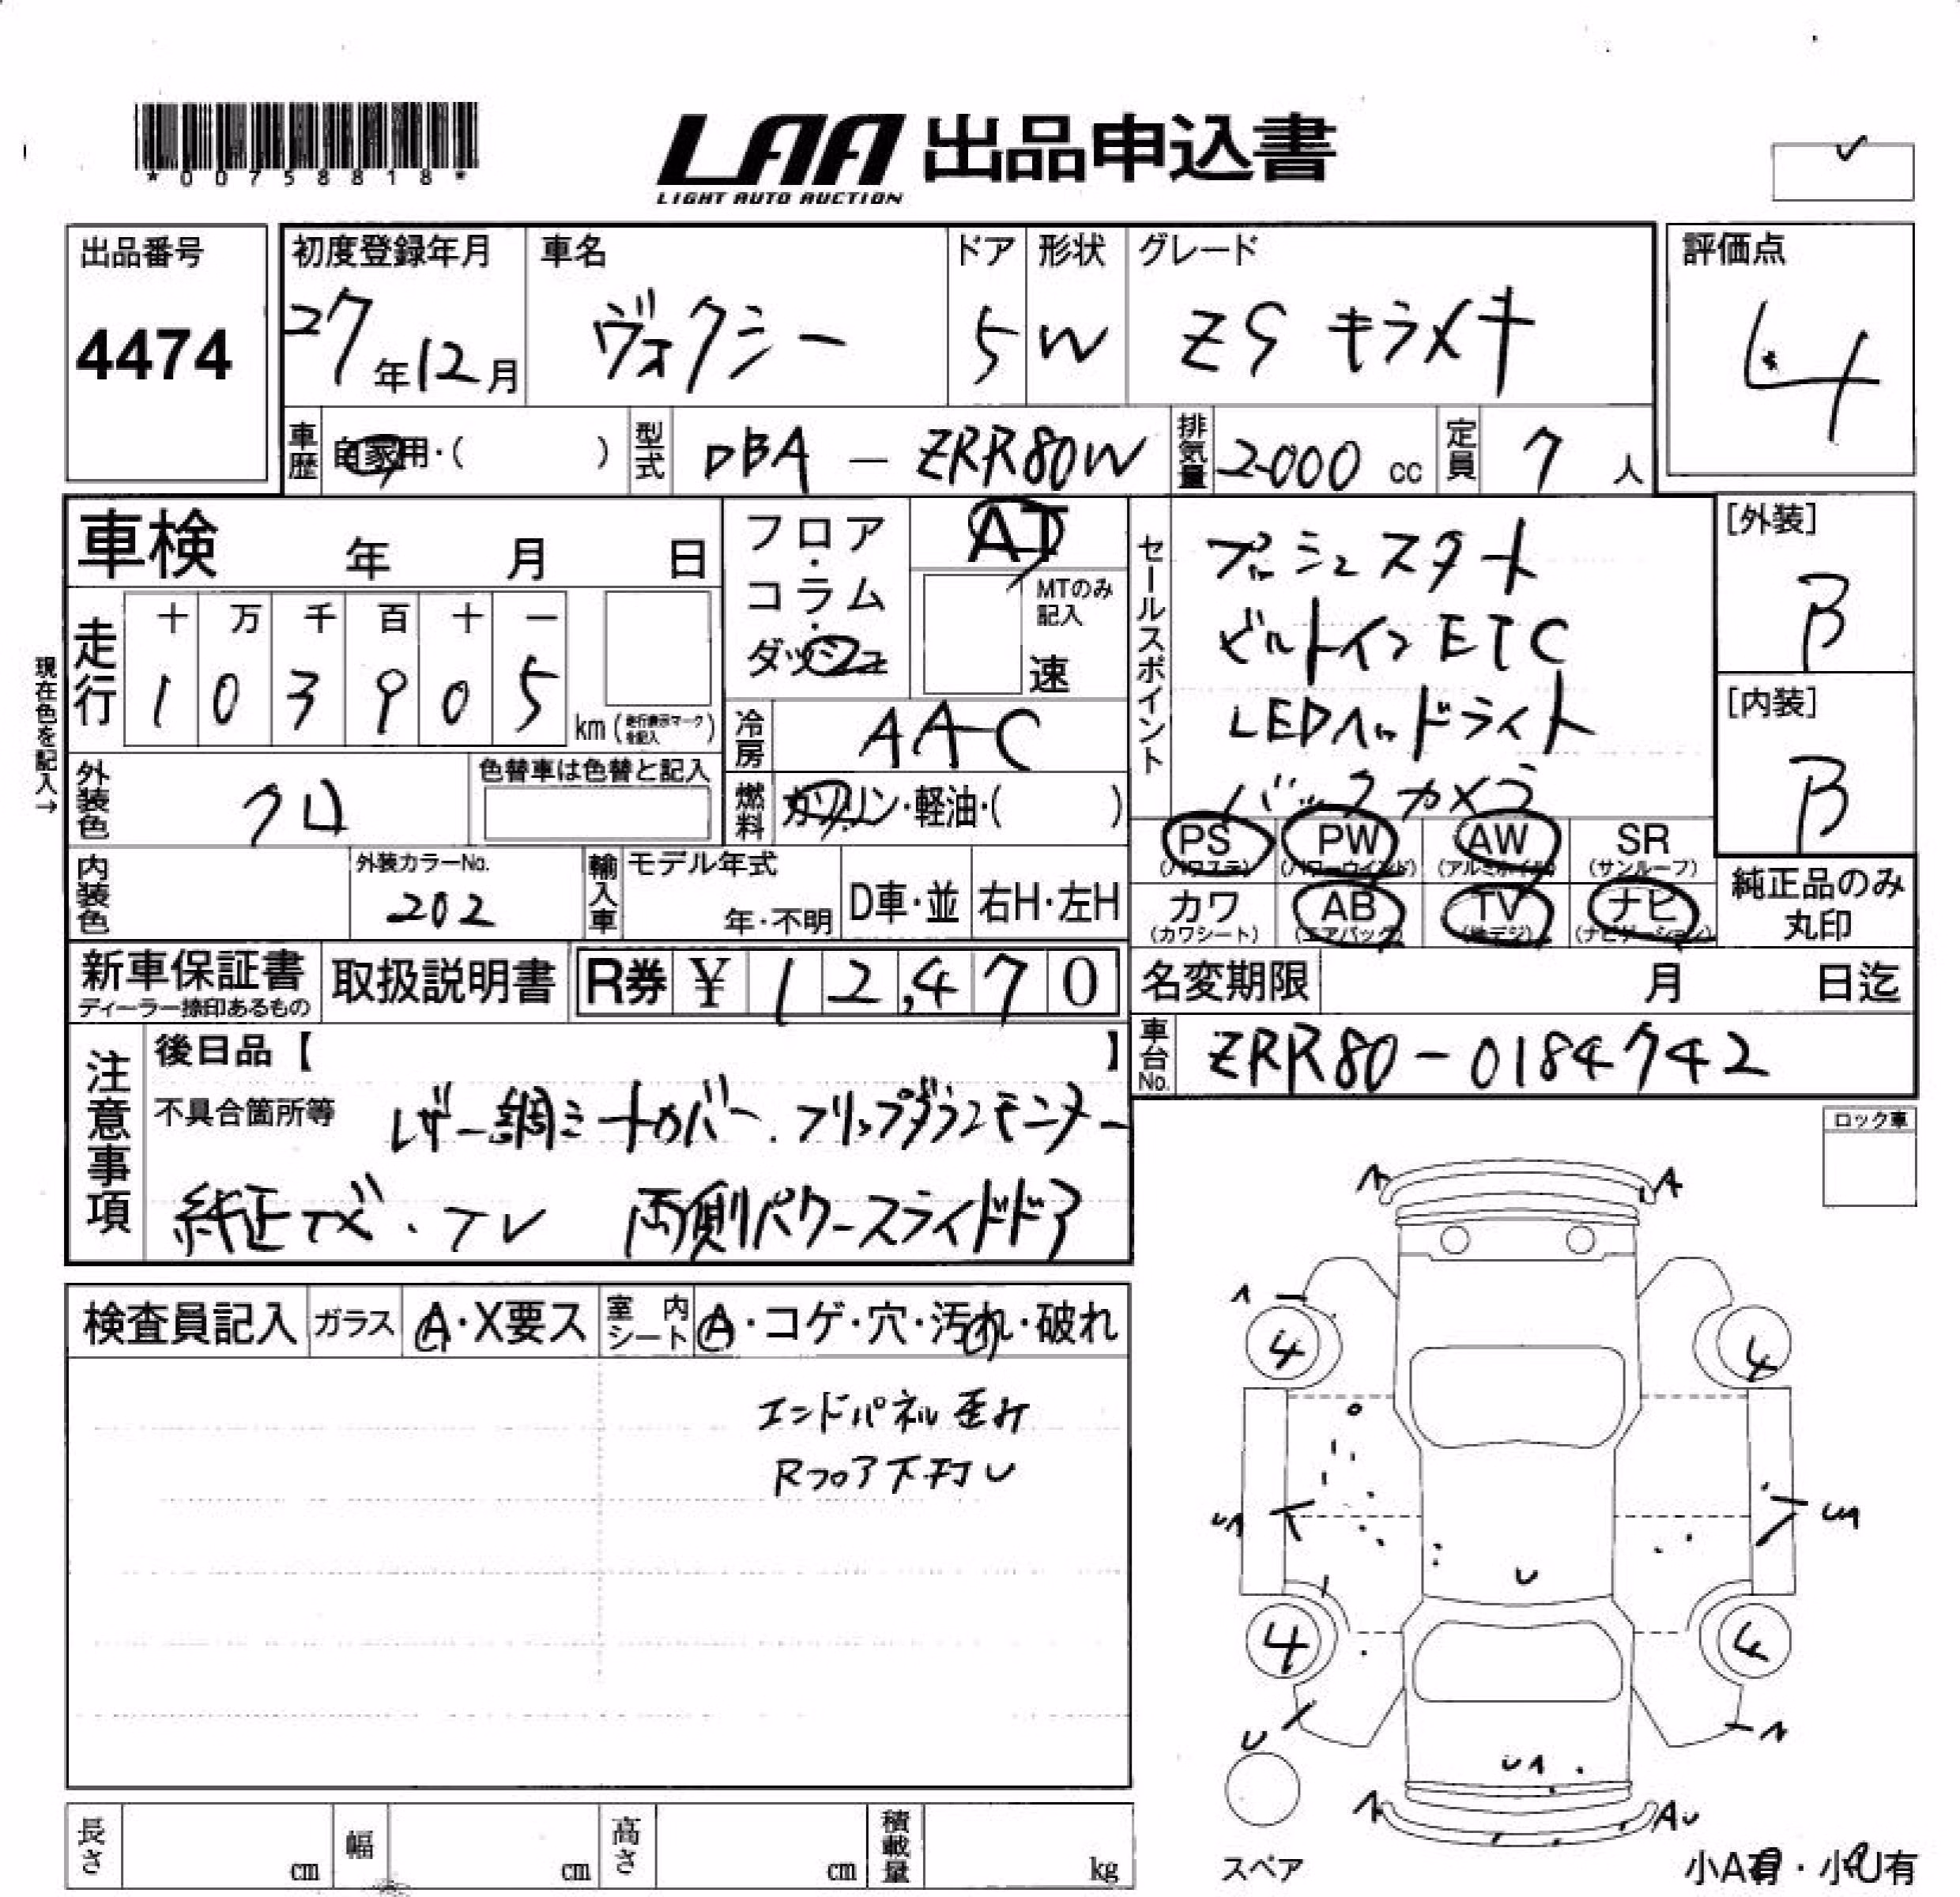 *00758818*
LAA 出品申込書
LIGHT AUTO AUCTION
出品番号
4474
初度登録年月
27年12月
車名
ヴォクシー
ドア
5
形状
W
グレード
ZS キラメキ
評価点
4
車歴
自家用・( )
型式
DBA - ZRR80W
排気量
2000 cc
定員
7 人
車検 年 月 日
フロア・コラム・ダッシュ
AT
MTのみ記入
速
セールスポイント
プッシュスタート
ビルトインETC
LEDヘッドライト
バックカメラ
[外装]
B
[内装]
B
現在色を記入→
走行
十 万 千 百 十 一
1 0 3 9 0 5
km (走行表示マークを記入)
冷房
AAC
外装色
クロ
色替車は色替と記入
燃料
ガソリン・軽油・( )
PS (パワステ)
PW (パワーウインド)
AW (アルミホイル)
SR (サンルーフ)
カワ (カワシート)
AB (エアバック)
TV (地デジ)
ナビ (ナビゲーション)
純正品のみ丸印
内装色
外装カラーNo.
202
輸入車
モデル年式
年・不明
D車・並
右H・左H
新車保証書
ディーラー捺印あるもの
取扱説明書
R券 ¥ 12,470
名変期限 月 日迄
車台No.
ZRR80-0184742
注意事項
後日品【 】
不具合箇所等
レザー調シートカバー.フリップダウンモニター
純正ナビ・TV 両側パワースライドドア
ロック車
検査員記入
ガラス
A・X要ス
室内シート
A・コゲ・穴・汚れ・破れ
エンドパネル歪み
Rフロア下押U
A
A
A
4
4
UA
UA
U
4
4
U
A
UA
A
AU
スペア
小A有・小U有
長さ cm
幅 cm
高さ cm
積載量 kg